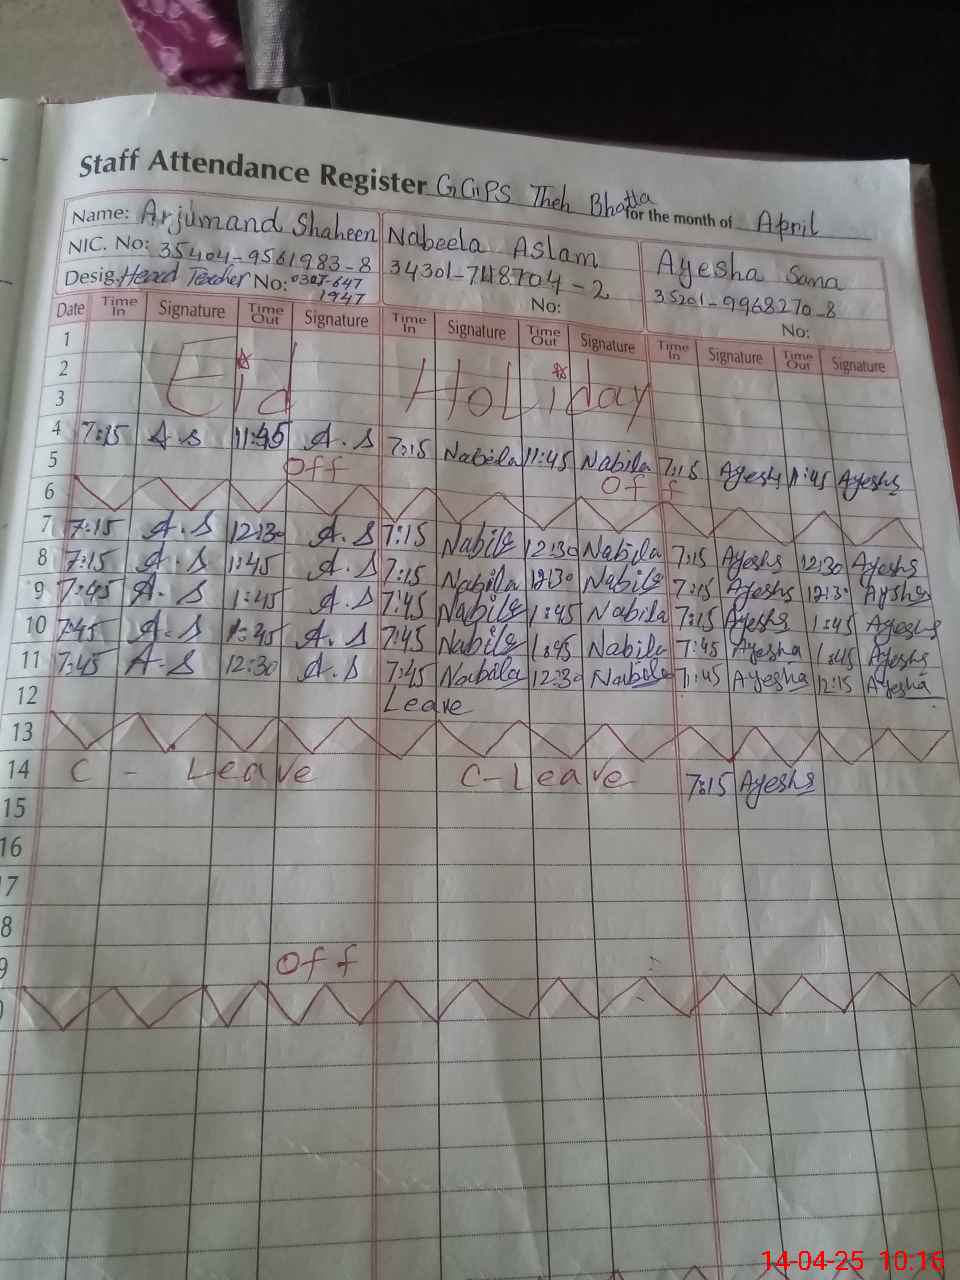 Staff Attendance Register GGPS Theh Bhatta for the month of April
Name: Arjumand Shaheen Nabeela Aslam Ayesha Sana
NIC. No: 35404-9561983-8 34301-748704-2 35201-9968270-8
Desig. Head Teacher No: 0307-647 1947 No: No:
Date Time In Signature Time Out Signature Time In Signature Time Out Signature Time In Signature Time Out Signature
1
2 Eid Holiday
3
4 7:15 A.S 11:45 A.S 7:15 Nabila 11:45 Nabila 7:15 Ayesha 11:45 Ayesha
5 Off Off
6
7 7:15 A.S 12:30 A.S 7:15 Nabila 12:30 Nabila 7:15 Ayesha 12:30 Ayesha
8 7:15 A.S 1:45 A.S 7:15 Nabila 12:30 Nabila 7:15 Ayesha 12:30 Ayesha
9 7:45 A.S 1:45 A.S 7:45 Nabila 1:45 Nabila 7:15 Ayesha 1:45 Ayesha
10 7:45 A.S 1:45 A.S 7:45 Nabila 1:45 Nabila 7:45 Ayesha 1:45 Ayesha
11 7:45 A.S 12:30 A.S 7:45 Nabila 12:30 Nabila 7:45 Ayesha 12:15 Ayesha
12 Leave
13
14 C - Leave C-Leave 7:15 Ayesha
15
16
7
8
9 Off
14-04-25 10:16